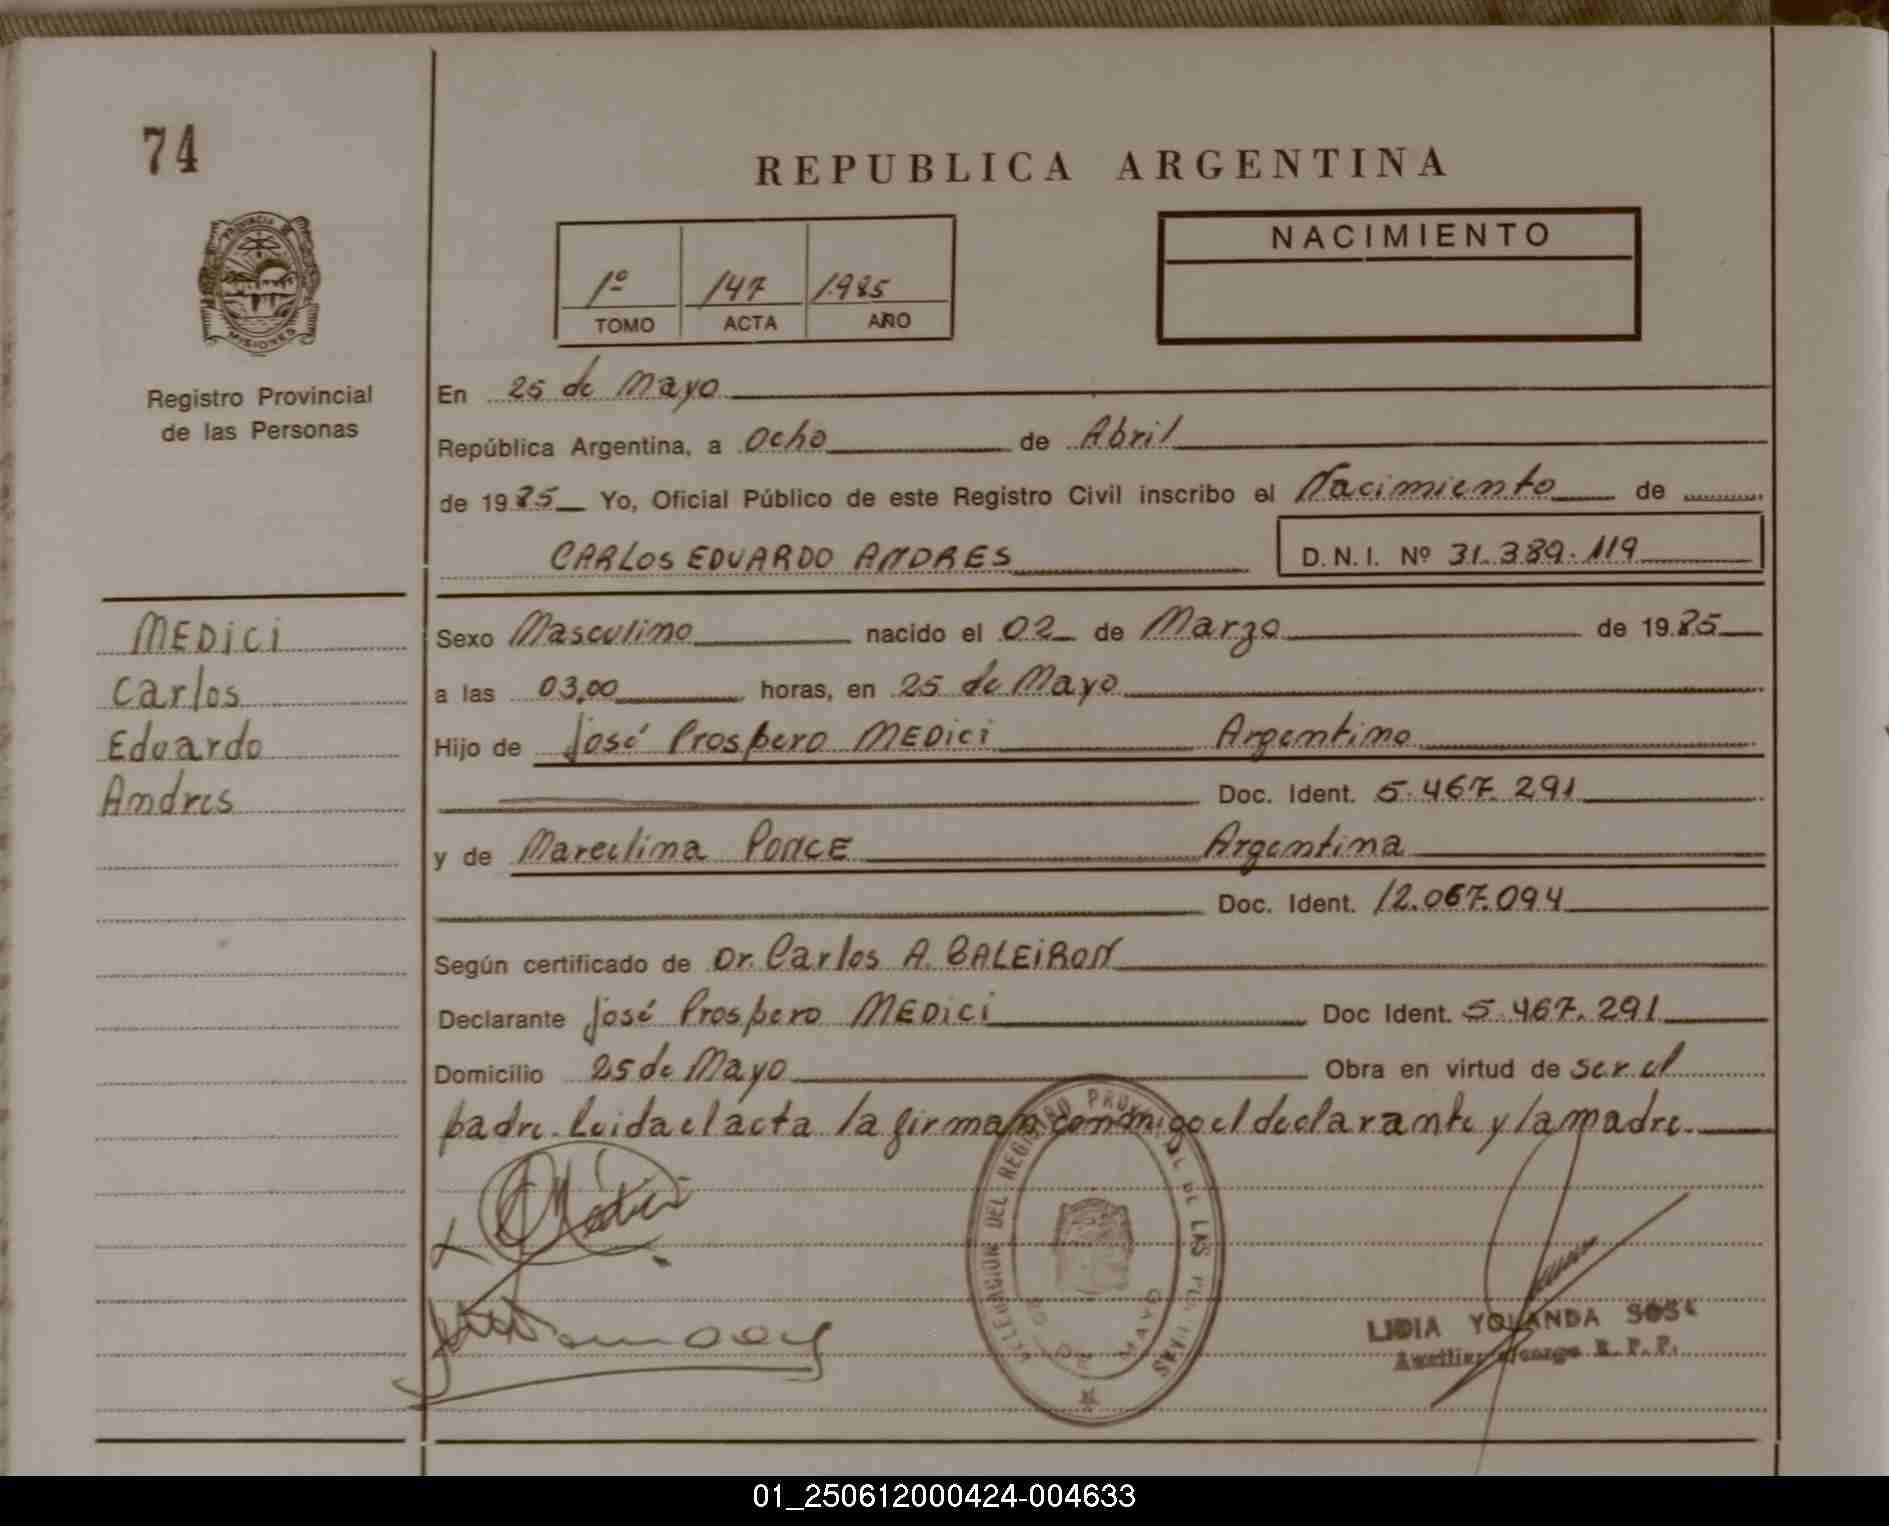 74
REPUBLICA ARGENTINA
PROVINCIA DE
MISIONES
Registro Provincial
de las Personas
1º 147 1.985
TOMO ACTA AÑO
NACIMIENTO
En 25 de Mayo
República Argentina, a Ocho de Abril
de 1985 Yo, Oficial Público de este Registro Civil inscribo el Nacimiento de
CARLOS EDUARDO ANDRES D.N.I. Nº 31.389.119
MEDICI
Carlos
Eduardo
Andres
Sexo Masculino nacido el 02 de Marzo de 1985
a las 03,00 horas, en 25 de Mayo
Hijo de José Prospero MEDICI Argentino
Doc. Ident. 5.467.291
y de Marcelina PONCE Argentina
Doc. Ident. 12.067.094
Según certificado de Dr. Carlos A. BALEIRON
Declarante José Prospero MEDICI Doc Ident. 5.467.291
Domicilio 25 de Mayo Obra en virtud de ser el
padre. Leida el acta la firman conmigo el declarante y la madre.
DELEGACION DEL REGISTRO PROVINCIAL DE LAS PERSONAS
25 DE MAYO
LIDIA YOLANDA SOSA
Auxiliar a cargo R. P. P.
01_250612000424-004633